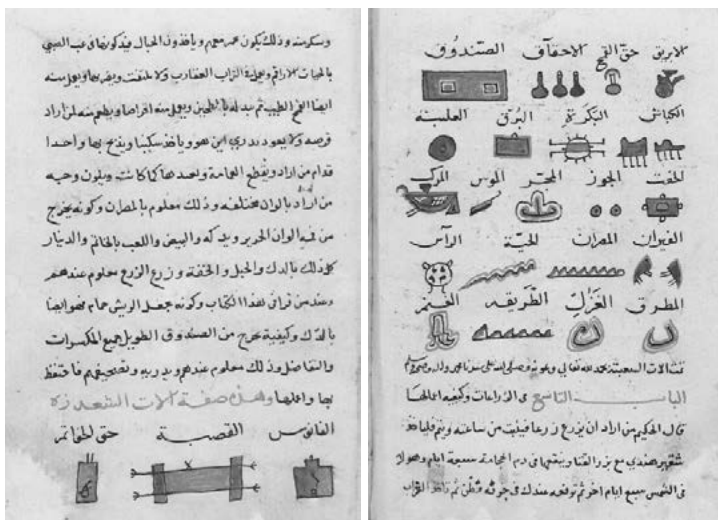 وسكرسته وذلك يكون عمر معمم وياخذون الحبال فيذكونها في عب الصبي
بالحيات كلاراقم وبعملية التراب العقارب
ايضا الطيب ثم بدله بالطين ويعمل منه اقراصا ويطعم منه لمن اراد
قرصه ولا يعود يدري اين هو وياخذ سكينا ويذبح بها واحدا
قدام من اراد ويقطع العمامة ويعيدها كما كانت ويلون وجه
من اراد بالوان مختلفة وذلك معلوم بالمصران وكونه يخرج
من فيه الوان الحرير ويدكه والبيض واللعب بالخاتم والدينار
كل ذلك بالدك والحيل والخفة وزرع الزرع معلوم عندهم
وعند من قرا في هذا الكتاب وكونه جعل الريش حمام فهو ايضا
بالدك وكيفية يخرج من الصندوق الطويل جميع المكسرات
والتفاضل وذلك معلوم عندهم فاحتفظ
بها واعلمها وهذه صفة آلات الشعبذة
الفانوس القصبة حق الخواتم
الابريق حق الفتح الاحقاق الصندوق
الكباش البكرة البرق العلبة
الجفت الجوز المجمر الموس المركب
الفيران المصران الحية الراس
المطرق الغزال الطريقه الغنم
تمت الات الشعبذة بحمد الله تعالى وعونه وصلى الله على سيدنا محمد واله وصحبه وسلم
الباب التاسع في الزراعات وكيفية اعمالها
قال الحكيم من اراد ان يزرع زرعا فينبت من ساعته
شهير هندي مع بزر القثا وينقعها في دم الحجامة سبعة ايام وهو لا
في الشمس سبع ايام اخر ثم ترفعه عندك في جونه وقطن ثم ناخذ التراب